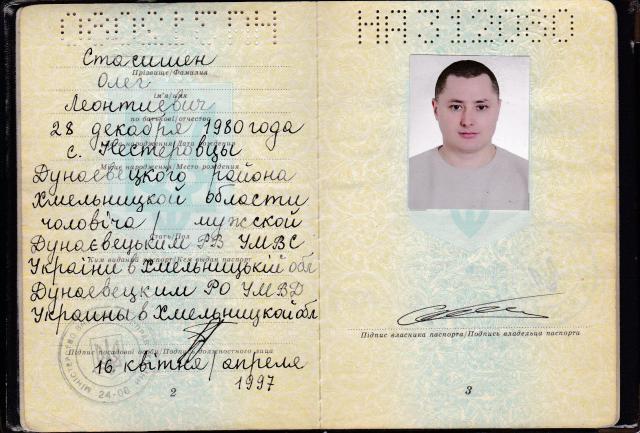 НА312060
Стасишен
Прізвище/Фамилия
Олег
ім'я/имя
Леонтиевич
по батькові/отчество
28 декабря 1980 года
народження/Дата рождения
с. Нестеровцы
Місце народження/Место рождения
Дунаевецкого района
Хмельницкой области
чоловіча / мужской
Стать/Пол
Дунаєвецьким РВ УМВС
Ким виданий паспорт/Кем выдан паспорт
України в Хмельницькій обл
Дунаевецким РО УМВД
Украины в Хмельницкой обл
Підпис посадової особи/Подпись должностного лица
16 квітня/апреля
1997
24-06
2
НА312060
Підпис власника паспорта/Подпись владельца паспорта
3